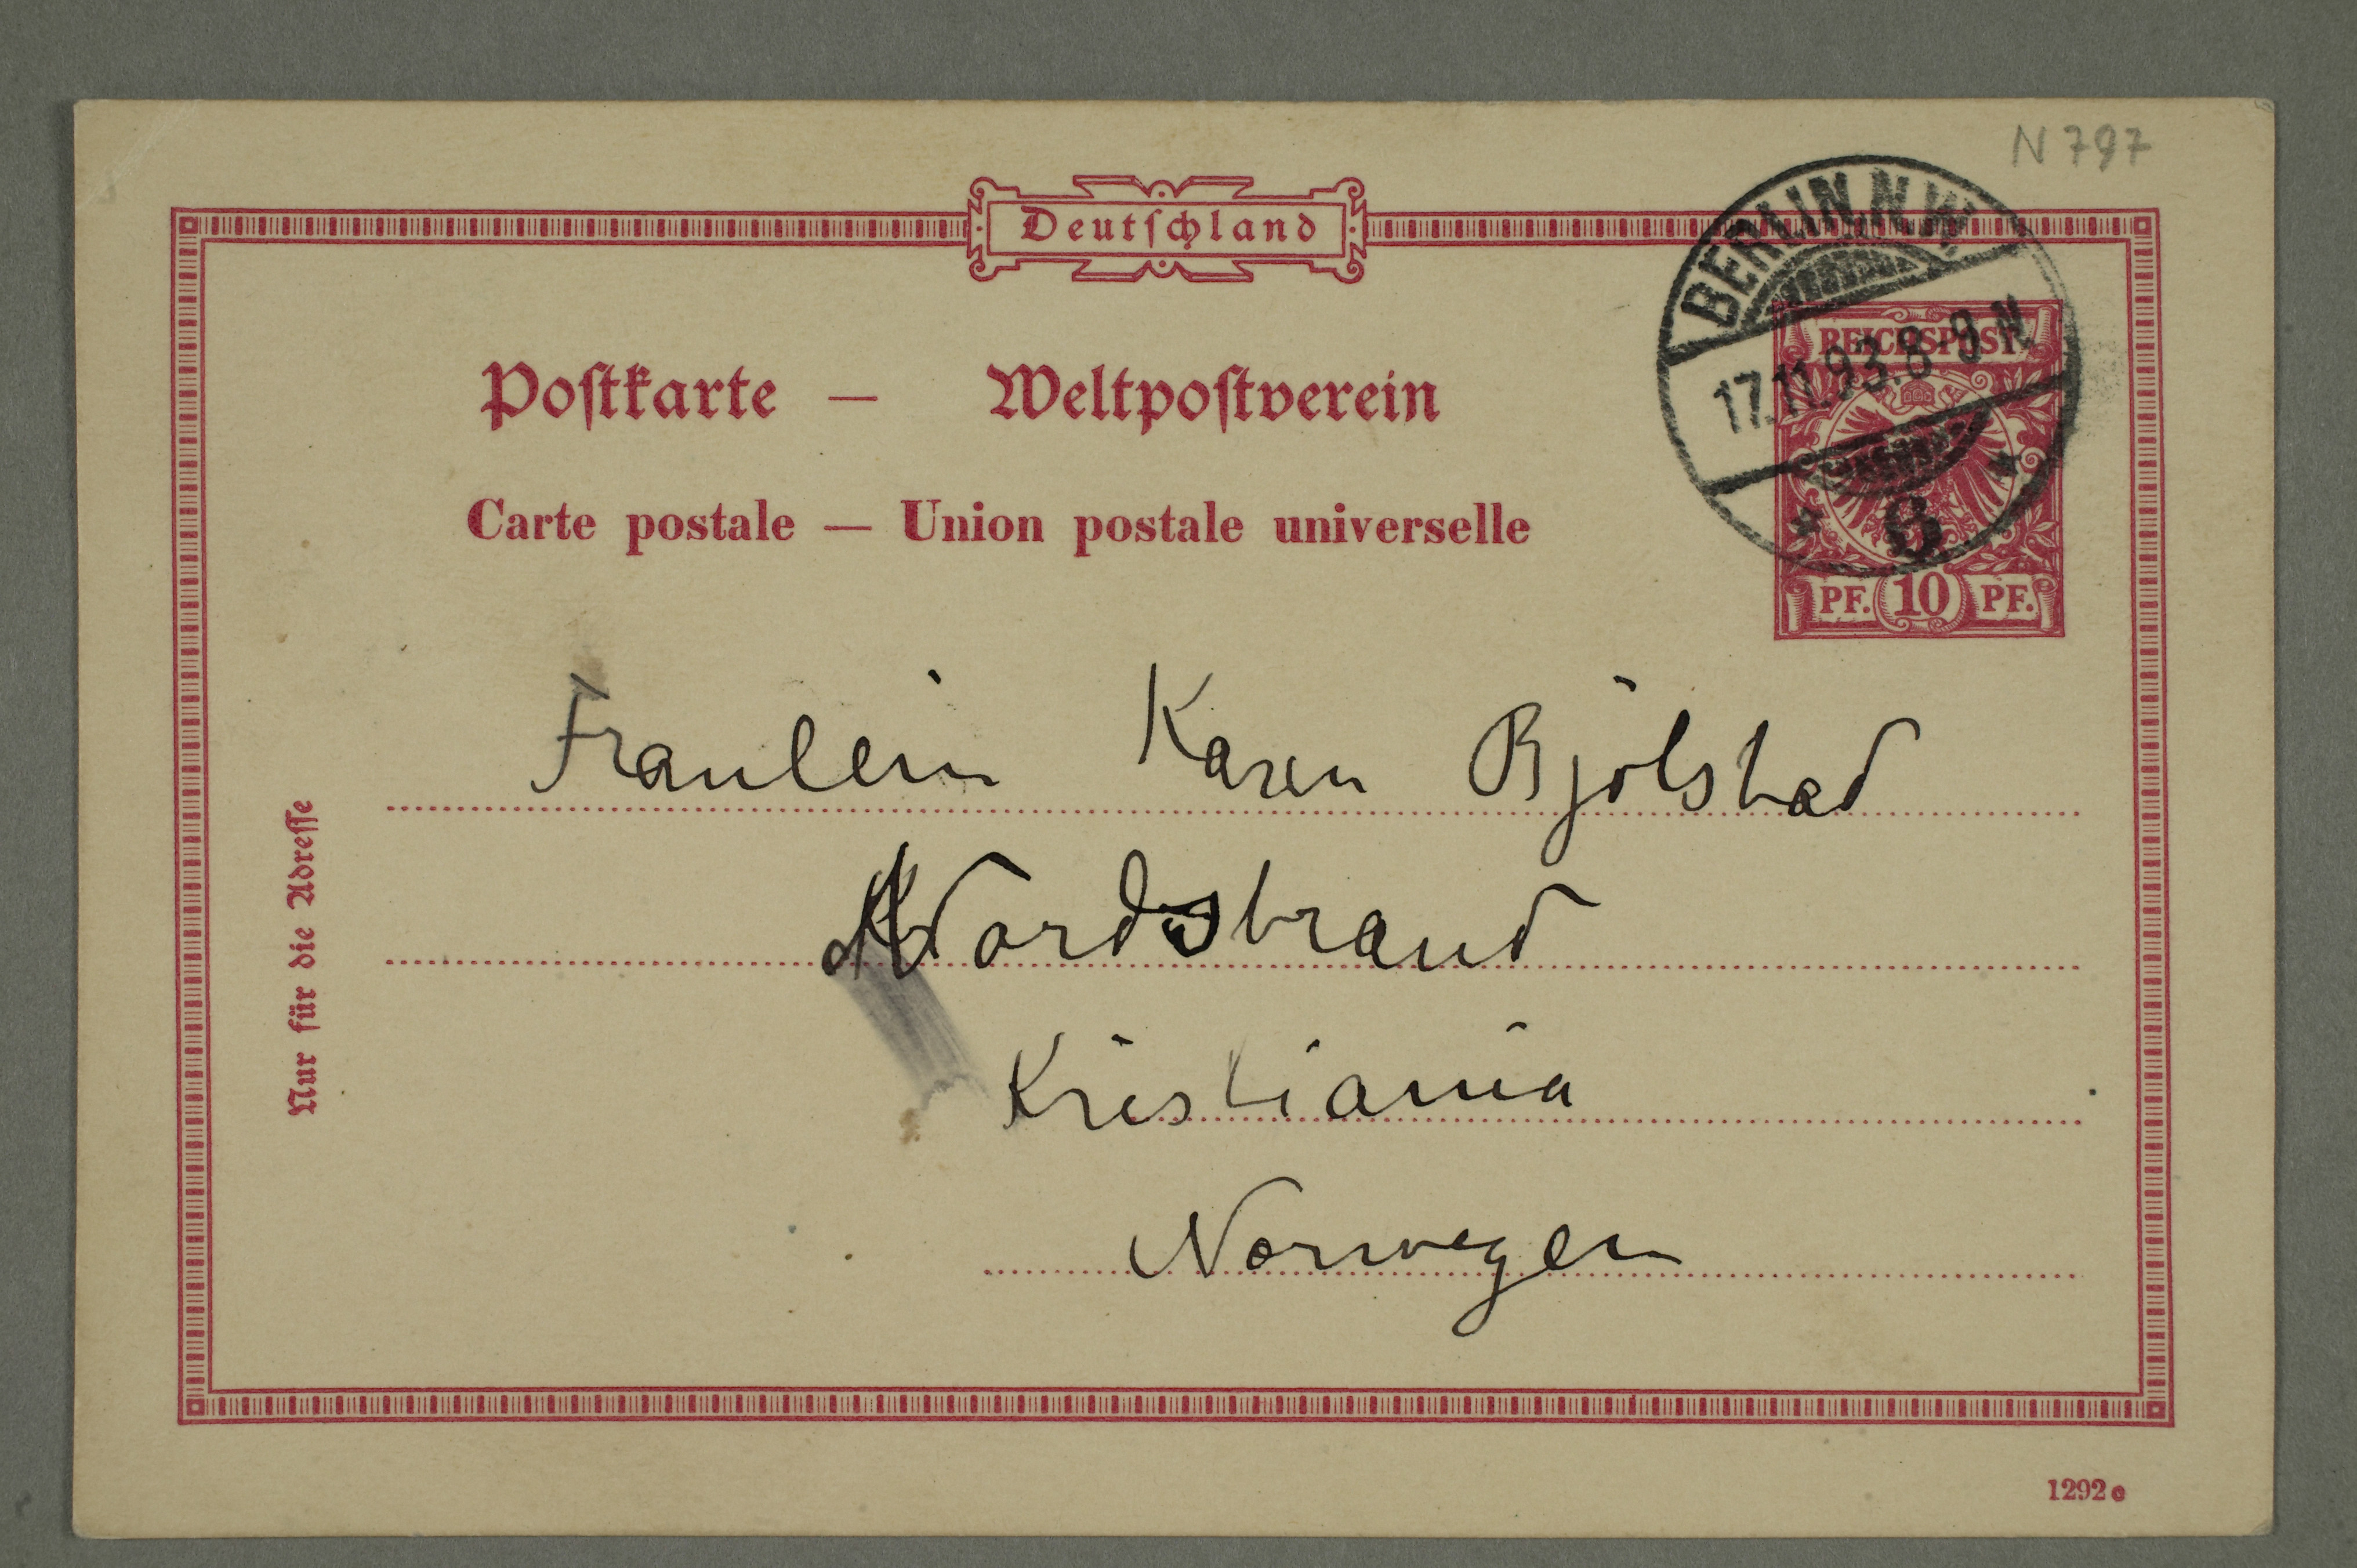 N 797
Deutschland
BERLIN.N.W.
17.11.93.8-9 N
* 6 *
REICHSPOST
PF. 10 PF.
Postkarte — Weltpostverein
Carte postale — Union postale universelle
Nur für die Adresse
Fraulein Karen Bjölstad
Nordstrand
Kristiania
Norwegen
1292 e